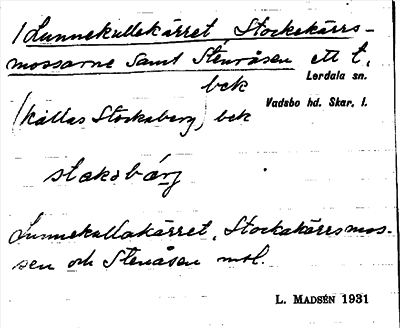 /Lunnekullekärret Stockakärrs-
mossarne samt Stenåsen ett t.
Lerdala sn.
bek
Vadsbo hd. Skar. l.
(kallas Stocksberg) bek
staksbärg
Lunnekullakärret, Stockakärrsmos-
sen och Stenåsen msl.
L. MADSÉN 1931